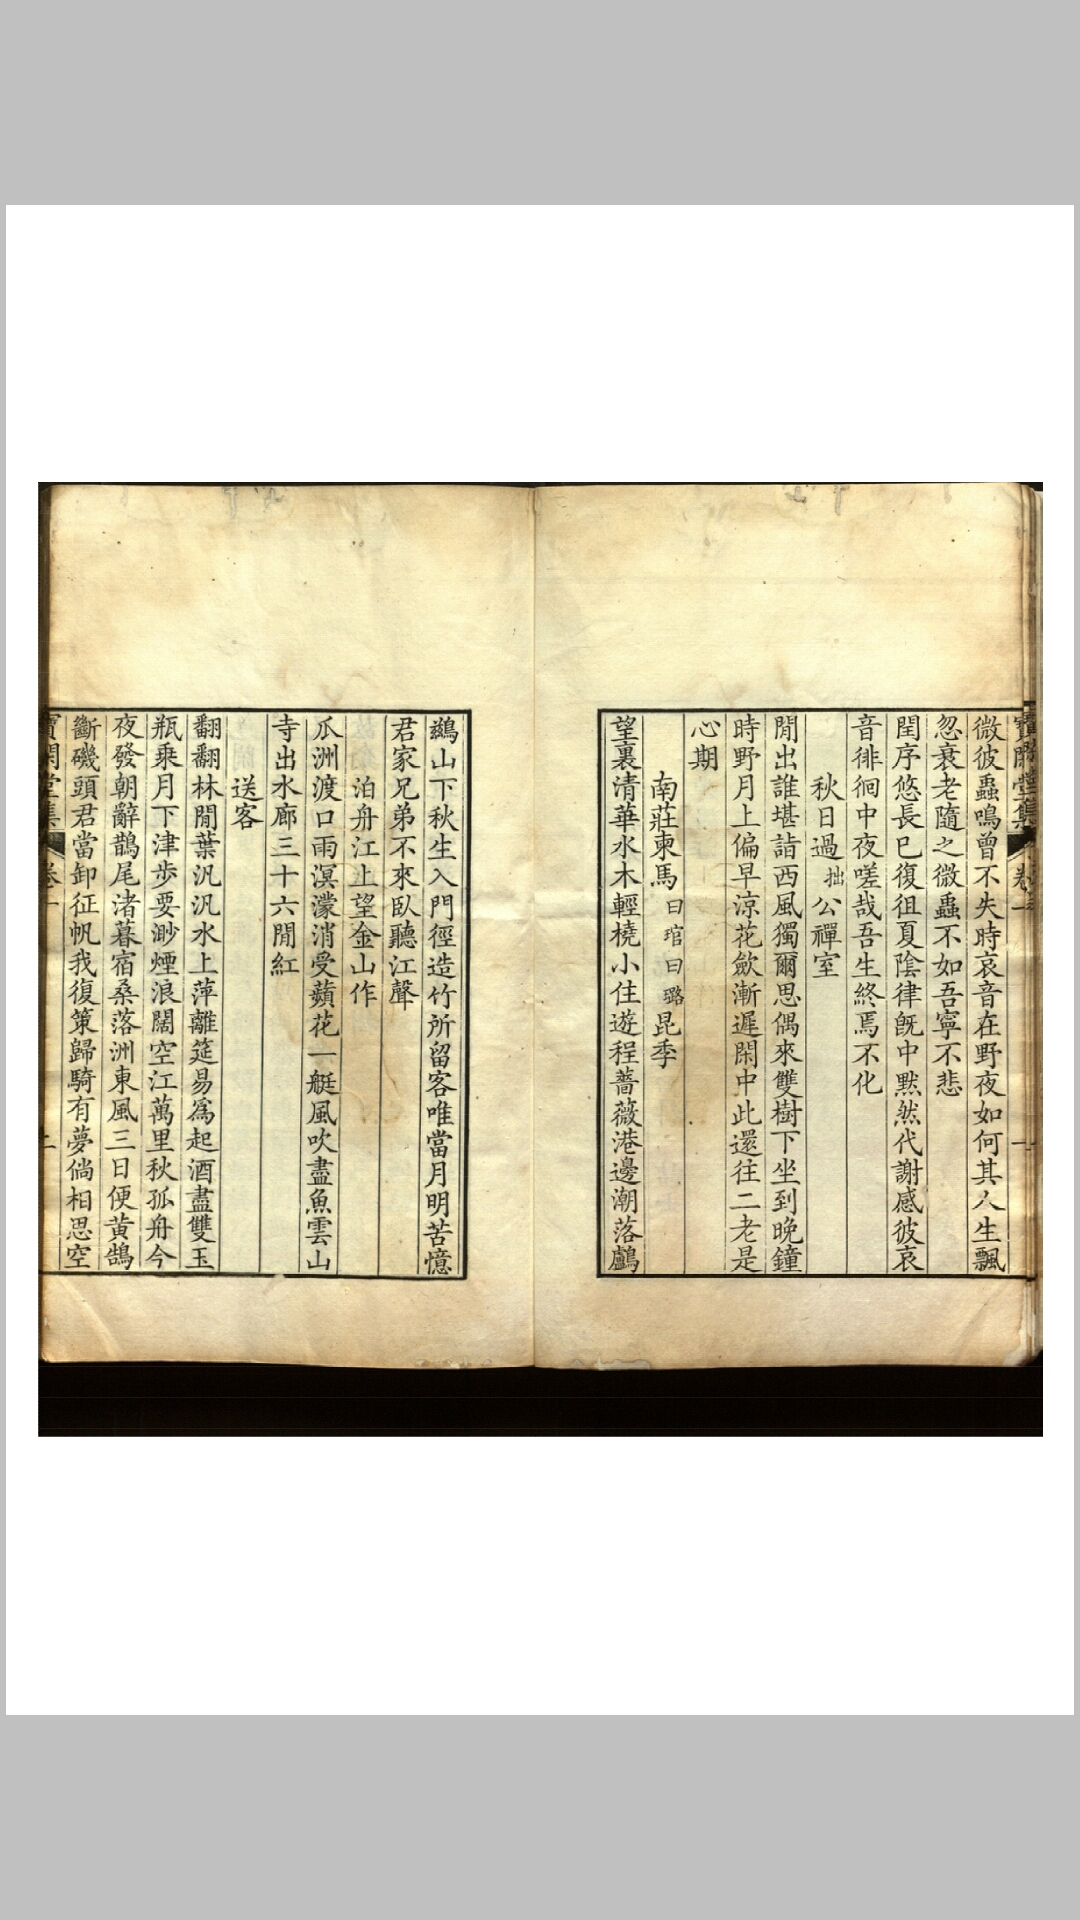 微彼蟲鳴曾不失時哀音在野夜如何其人生飄
忽衰老隨之微蟲不如吾寧不悲
閏序悠長已復徂夏陰律旣中黙然代謝感彼哀
音徘徊中夜嗟哉吾生終焉不化
秋日過拙公禪室
閒出誰堪詣西風獨爾思偶來雙樹下坐到晩鐘
時野月上偏早涼花歛漸遲閑中此還往二老是
心期
南莊柬馬曰琯曰璐昆季
望裏清華水木輕橈小住遊程薔薇港邊潮落鸕
鷀山下秋生入門徑造竹所留客唯當月明苦憶
君家兄弟不來臥聽江聲
泊舟江上望金山作
瓜洲渡口雨溟濛消受蘋花一艇風吹盡魚雲山
寺出水廊三十六閒紅
送客
翻翻林閒葉汎汎水上萍離筵易爲起酒盡雙玉
瓶乘月下津步要渺煙浪闊空江萬里秋孤舟今
夜發朝辭鵲尾渚暮宿桑落洲東風三日便黃鵠
斷磯頭君當卸征帆我復策歸騎有夢倘相思空
寶閑堂集
卷一